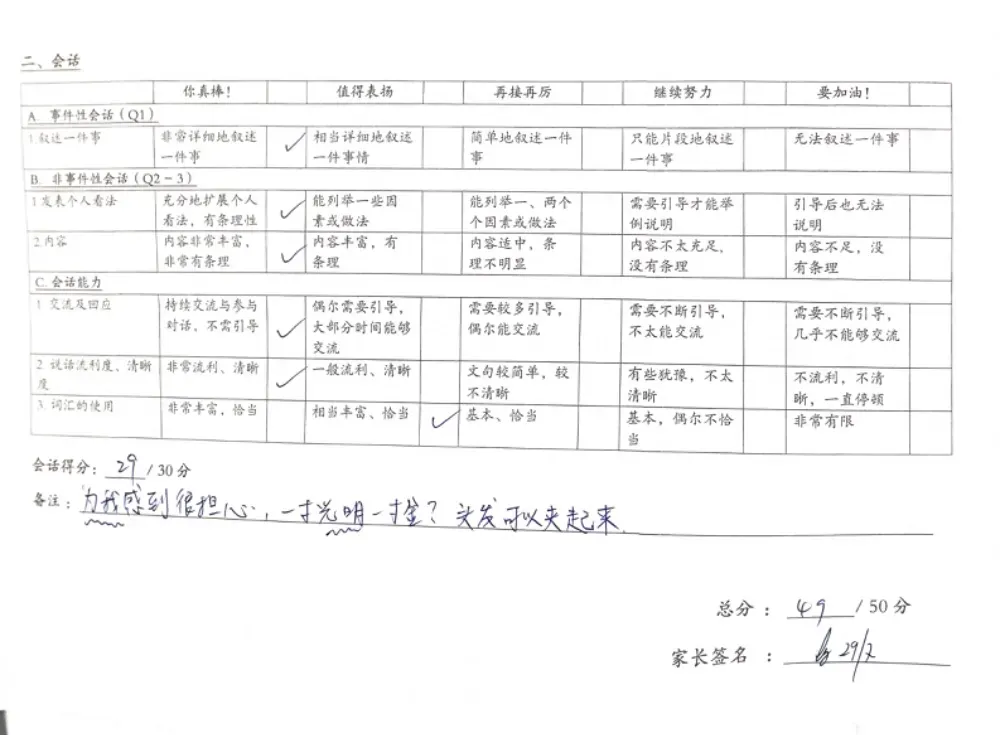 二、会话
你真棒! 值得表扬 再接再厉 继续努力 要加油!
A. 事件性会话(Q1)
1.叙述一件事 非常详细地叙述一件事 ✓ 相当详细地叙述一件事情 简单地叙述一件事 只能片段地叙述一件事 无法叙述一件事
B. 非事件性会话(Q2-3)
1发表个人看法 充分地扩展个人看法,有条理性 ✓ 能列举一些因素或做法 能列举一、两个个因素或做法 需要引导才能举例说明 引导后也无法说明
2.内容 内容非常丰富,非常有条理 ✓ 内容丰富,有条理 内容适中,条理不明显 内容不太充足,没有条理 内容不足,没有条理
C. 会话能力
1 交流及回应 持续交流与参与对话,不需引导 ✓ 偶尔需要引导,大部分时间能够交流 需要较多引导,偶尔能交流 需要不断引导,不太能交流 需要不断引导,几乎不能够交流
2. 说话流利度、清晰度 非常流利、清晰 ✓ 一般流利、清晰 文句较简单,较不清晰 有些犹豫,不太清晰 不流利,不清晰,一直停顿
3. 词汇的使用 非常丰富,恰当 相当丰富、恰当 ✓ 基本、恰当 基本,偶尔不恰当 非常有限
会话得分: 29 /30分
备注: 为我感到很担心,一寸光明一寸金?头发可以夹起来
总分 : 49 /50分
家长签名 : 29/7